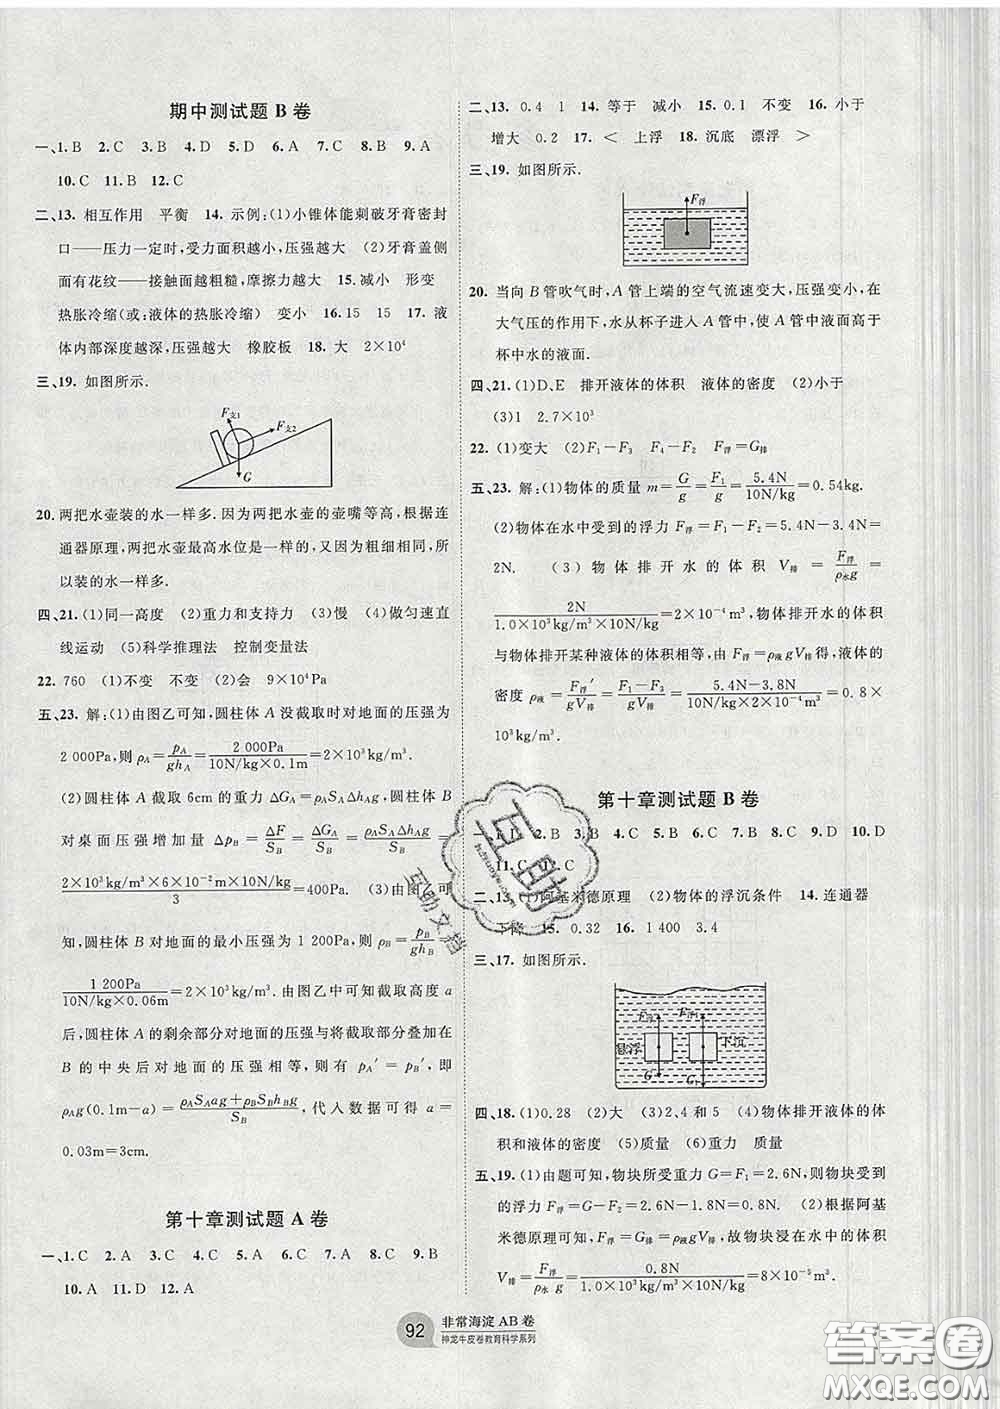 期中测试题 B 卷
一、1. B 2. C 3. B 4. D 5. D 6. A 7. C 8. B 9. A
10. C 11. B 12. C
二、13. 相互作用 平衡 14. 示例:(1)小锥体能刺破牙膏密封
口——压力一定时,受力面积越小,压强越大 (2)牙膏盖侧
面有花纹——接触面越粗糙,摩擦力越大 15. 减小 形变
热胀冷缩(或:液体的热胀冷缩) 变小 16. 15 15 17. 液
体内部深度越深,压强越大 橡胶板 18. 大 2×10⁴
三、19. 如图所示.
F支1
F支2
G
20. 两把水壶装的水一样多. 因为两把水壶的壶嘴等高,根据连
通器原理,两把水壶最高水位是一样的,又因为粗细相同,所
以装的水一样多.
四、21. (1)同一高度 (2)重力和支持力 (3)慢 (4)做匀速直
线运动 (5)科学推理法 控制变量法
22. 760 (1)不变 不变 (2)会 9×10⁴Pa
五、23. 解:(1)由图乙可知,圆柱体 A 没截取时对地面的压强为
2 000Pa,则 ρA=pA/ghA=2 000Pa/(10N/kg×0.1m)=2×10³kg/m³.
(2)圆柱体 A 截取 6cm 的重力 ΔGA=ρASAΔhAg,圆柱体 B
对桌面压强增加量 ΔpB=ΔF/SB=ρASAΔhAg/SB=
2×10³kg/m³×6×10⁻²m×10N/kg/3=400Pa. (3)由图乙可
知,圆柱体 B 对地面的最小压强为 1 200Pa,则 ρB=pB/ghB=
1 200Pa/(10N/kg×0.06m)=2×10³kg/m³. 由图乙中可知截取高度 a
后,圆柱体 A 的剩余部分对地面的压强与将截取部分叠加在
B 的中央后对地面的压强相等,则有 pA′=pB′,即
ρAg(0.1m-a)=(ρASAag+ρBSBhBg)/SB,代入数据可得 a=
0.03m=3cm.
第十章测试题 A 卷
一、1. C 2. A 3. C 4. C 5. A 6. C 7. A 8. C 9. B
10. A 11. D 12. A
二、13. 0.4 1 14. 等于 减小 15. 0.1 不变 16. 小于
增大 0.2 17. < 上浮 18. 沉底 漂浮 >
三、19. 如图所示.
F浮
20. 当向 B 管吹气时,A 管上端的空气流速变大,压强变小,在
大气压的作用下,水从杯子进入 A 管中,使 A 管中液面高于
杯中水的液面.
四、21. (1)D、E 排开液体的体积 液体的密度 (2)小于
(3)1 2.7×10³
22. (1)变大 (2)F₁-F₃ F₄-F₂ F浮=G排
五、23. 解:(1)物体的质量 m=G/g=F₁/g=5.4N/(10N/kg)=0.54kg.
(2)物体在水中受到的浮力 F浮=F₁-F₂=5.4N-3.4N=
2N. (3)物体排开水的体积 V排=F浮/ρ水g=
2N/(1.0×10³kg/m³×10N/kg)=2×10⁻⁴m³,物体排开水的体积
与物体排开某种液体的体积相等,由 F浮=ρ液gV排得,液体的
密度 ρ液=F浮′/gV排=(F₁-F₃)/gV排=(5.4N-3.8N)/(10N/kg×2×10⁻⁴m³)=0.8×
10³kg/m³.
第十章测试题 B 卷
2. B 3. B 4. C 5. C 6. B 7. B 8. C 9. D 10. D
11. C 12. C
二、13. (1)阿基米德原理 (2)物体的浮沉条件 14. 连通器
下降 15. 0.32 16. 1 400 3.4
三、17. 如图所示.
F浮 F浮
悬浮 下沉
G G
四、18. (1)0.28 (2)大 (3)2、4 和 5 (4)物体排开液体的体
积和液体的密度 (5)质量 (6)重力 质量
五、19. (1)由题可知,物块所受重力 G=F₁=2.6N,则物块受到
的浮力 F浮=G-F₂=2.6N-1.8N=0.8N. (2)根据阿基
米德原理可知,F浮=G排=ρ液gV排,故物块浸在水中的体积
V排=F浮/ρ水g=0.8N/(1.0×10³kg/m³×10N/kg)=8×10⁻⁵m³.
92 非常海淀 AB 卷
神龙牛皮卷教育科学系列
互助
互助文档
答案圈
MXQE.COM